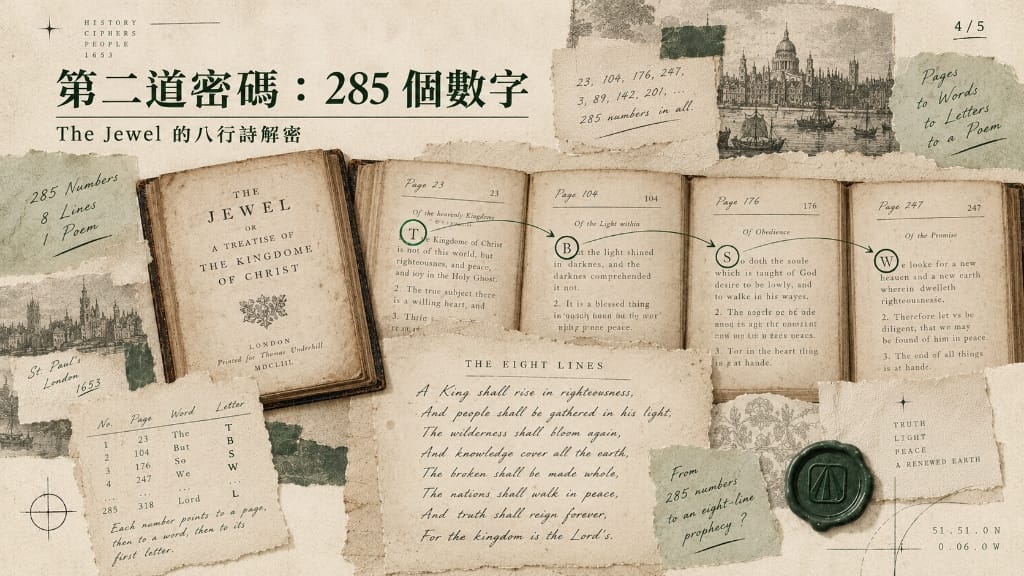 HISTORY
CIPHERS
PEOPLE
1653
4/5
第二道密碼：285 個數字
The Jewel 的八行詩解密
23, 104, 176, 247,
3, 89, 142, 201, ...
285 numbers in all.
Pages
to Words
to Letters
to a Poem
285 Numbers
8 Lines
1 Poem
THE
JEWEL
OR
A TREATISE OF
THE KINGDOME
OF CHRIST
LONDON
Printed for Thomas Underhill
MDCLIII.
Page 23
23
Of the heavenly Kingdome
T
e Kingdome of Christ
is not of this world, but
righteousness, and peace,
and joy in the Holy Ghost.
2. The true subject there
is a willing heart, and
3.
Page 104
104
Of the Light within
B
t the light shined
in darknes, and the
darknes comprehended
it not.
2. It is a blessed thing
peace.
Page 176
176
Of Obedience
S
o doth the soule
which is taught of God
desire to be lowly, and
to walk in his wayes.
2. The
3. Tor in the beart thing
is at hard.
Page 247
247
Of the Promise
W
e looke for a new
heauen and a new earth
wherein dwelleth
righteousnesse.
2. Therefore let vs be
diligent, that we may
be found of him in peace.
3. The end of all things
is at hande.
St. Paul's
London
1653
No. Page Word Letter
1 23 The T
2 104 But B
3 176 So S
4 247 We W
... ... ...
285 318 Lord L
Each number points to a page,
then to a word, then to its
first letter.
THE EIGHT LINES
A King shall rise in righteousness,
And people shall be gathered in his light,
The wilderness shall bloom again,
And knowledge cover all the earth,
The broken shall be made whole,
The nations shall walk in peace,
And truth shall reign forever,
For the kingdom is the Lord's.
From
285 numbers
to an eight-line
prophecy ?
TRUTH
LIGHT
PEACE
A RENEWED EARTH
51.51.0 N
0.06.0 W